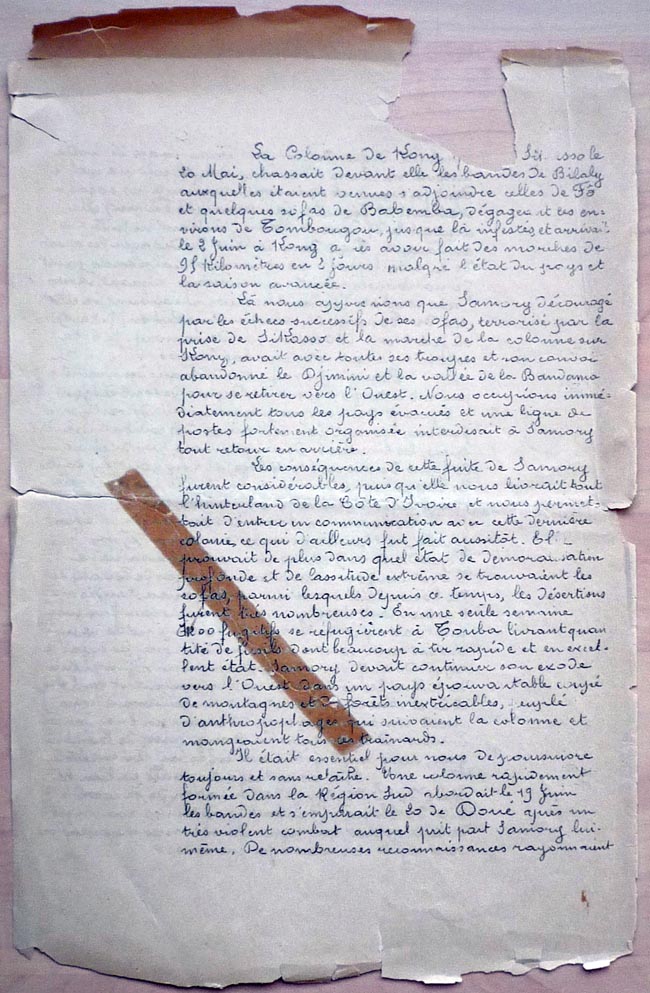 La Colonne de Kong
20 Mai, chassait devant elle les bandes de Bilaly
auxquelles étaient venues s'adjoindre celles de Fô
et quelques sofas de Babemba, dégageait les en-
virons de Tombougou, jusque là infestés et arrivait
le 2 Juin à Kong après avoir fait des marches de
95 kilomètres en 2 jours malgré l'état du pays et
la saison avancée.
Là nous apprenions que Samory découragé
par les échecs successifs de ses sofas, terrorisé par la
prise de Sikasso et la marche de la colonne sur
Kong, avait avec toutes ses troupes et son convoi
abandonné le Djimini et la vallée de la Bandama
pour se retirer vers l'Ouest. Nous occupions immé-
diatement tous les pays évacués et une ligne de
postes fortement organisée interdisait à Samory
tout retour en arrière.
Les conséquences de cette fuite de Samory
furent considérables, puisqu'elle nous livrait tout
l'hinterland de la Côte d'Ivoire et nous permet-
tait d'entrer en communication avec cette dernière
colonie, ce qui d'ailleurs fut fait aussitôt. El
prouvait de plus dans quel état de démoralisation
profonde et de lassitude extrême se trouvaient les
sofas, parmi lesquels depuis ce temps, les désertions
furent très nombreuses. En une seule semaine
fugitifs se réfugièrent à Touba livrant quan
tité de fusils dont beaucoup à tir rapide et en excel-
lent état. Samory devait continuer son exode
vers l'Ouest dans un pays épouvantable coupé
de montagnes et de forêts inextricables, peuplé
d'anthropophages qui suivaient la colonne et
mangeaient tous les traînards.
Il était essentiel pour nous de poursuivre
toujours et sans relâche. Une colonne rapidement
formée dans la Région Sud abordait le 19 Juin
les bandes et s'emparait le 20 de Doué après un
très violent combat auquel prit part Samory lui-
même. De nombreuses reconnaissances rayonnaient